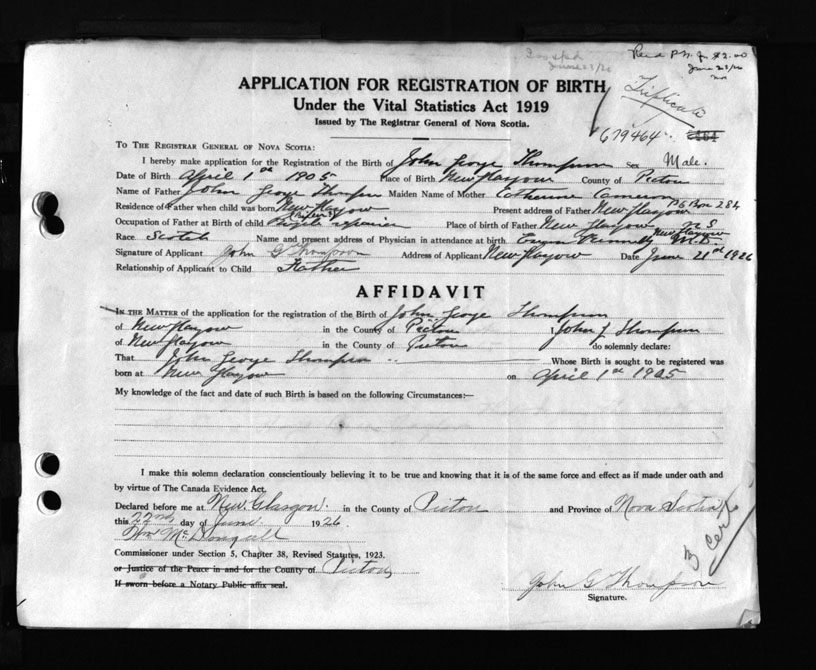 Recd P.N. for $2.00
June 23/26
APPLICATION FOR REGISTRATION OF BIRTH
Triplicate
Under the Vital Statistics Act 1919
Issued by The Registrar General of Nova Scotia.
679464
To THE REGISTRAR GENERAL OF NOVA SCOTIA:
I hereby make application for the Registration of the Birth of John George Thompson Sex Male.
Date of Birth April 1st 1905 Place of Birth New Glasgow County of Pictou
Name of Father John George Thompson Maiden Name of Mother Catherine Cameron
Residence of Father when child was born New Glasgow Present address of Father New Glasgow P.O Box 284
Occupation of Father at Birth of child Place of birth of Father New Glasgow N S
Race Scotch Name and present address of Physician in attendance at birth Kennedy M.D. New Glasgow
Signature of Applicant John G Thompson Address of Applicant New Glasgow Date June 21st 1926
Relationship of Applicant to Child Father
AFFIDAVIT
IN THE MATTER of the application for the registration of the Birth of John George Thompson
of New Glasgow in the County of Pictou I, John G Thompson
of New Glasgow in the County of Pictou do solemnly declare:
That John George Thompson Whose Birth is sought to be registered was
born at New Glasgow on April 1st 1905
My knowledge of the fact and date of such Birth is based on the following Circumstances:—
I make this solemn declaration conscientiously believing it to be true and knowing that it is of the same force and effect as if made under oath and
by virtue of The Canada Evidence Act.
Declared before me at New Glasgow. in the County of Pictou and Province of Nova Scotia
this 22nd day of June. 1926
Wm McDougall
3 Cert
Commissioner under Section 5, Chapter 38, Revised Statutes, 1923.
or Justice of the Peace in and for the County of Pictou
If sworn before a Notary Public affix seal.
John G Thompson
Signature.